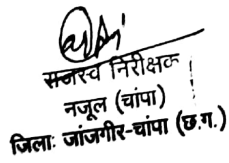 राजस्व निरीक्षक
नजूल (चांपा)
जिला: जांजगीर-चांपा (छ.ग.)